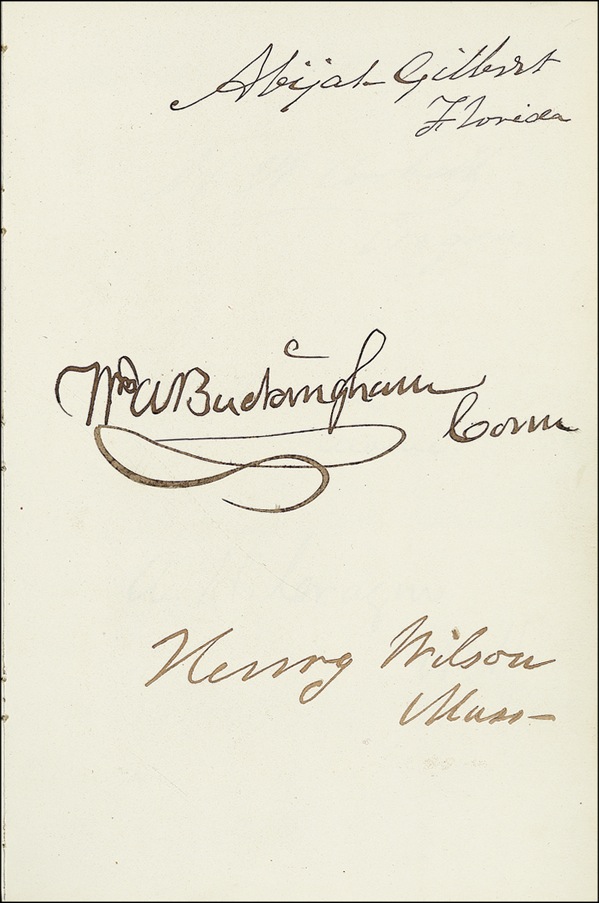 Abijah Gilbert
Florida
Wm A Buckingham
Conn
Henry Wilson
Mass